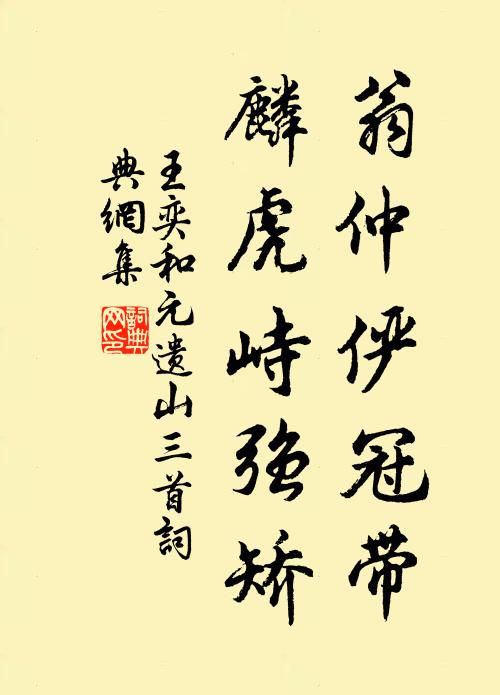 翁仲俨冠带
麟虎峙强矫
王奕和元遗山三首詞
典網集
詞典网印